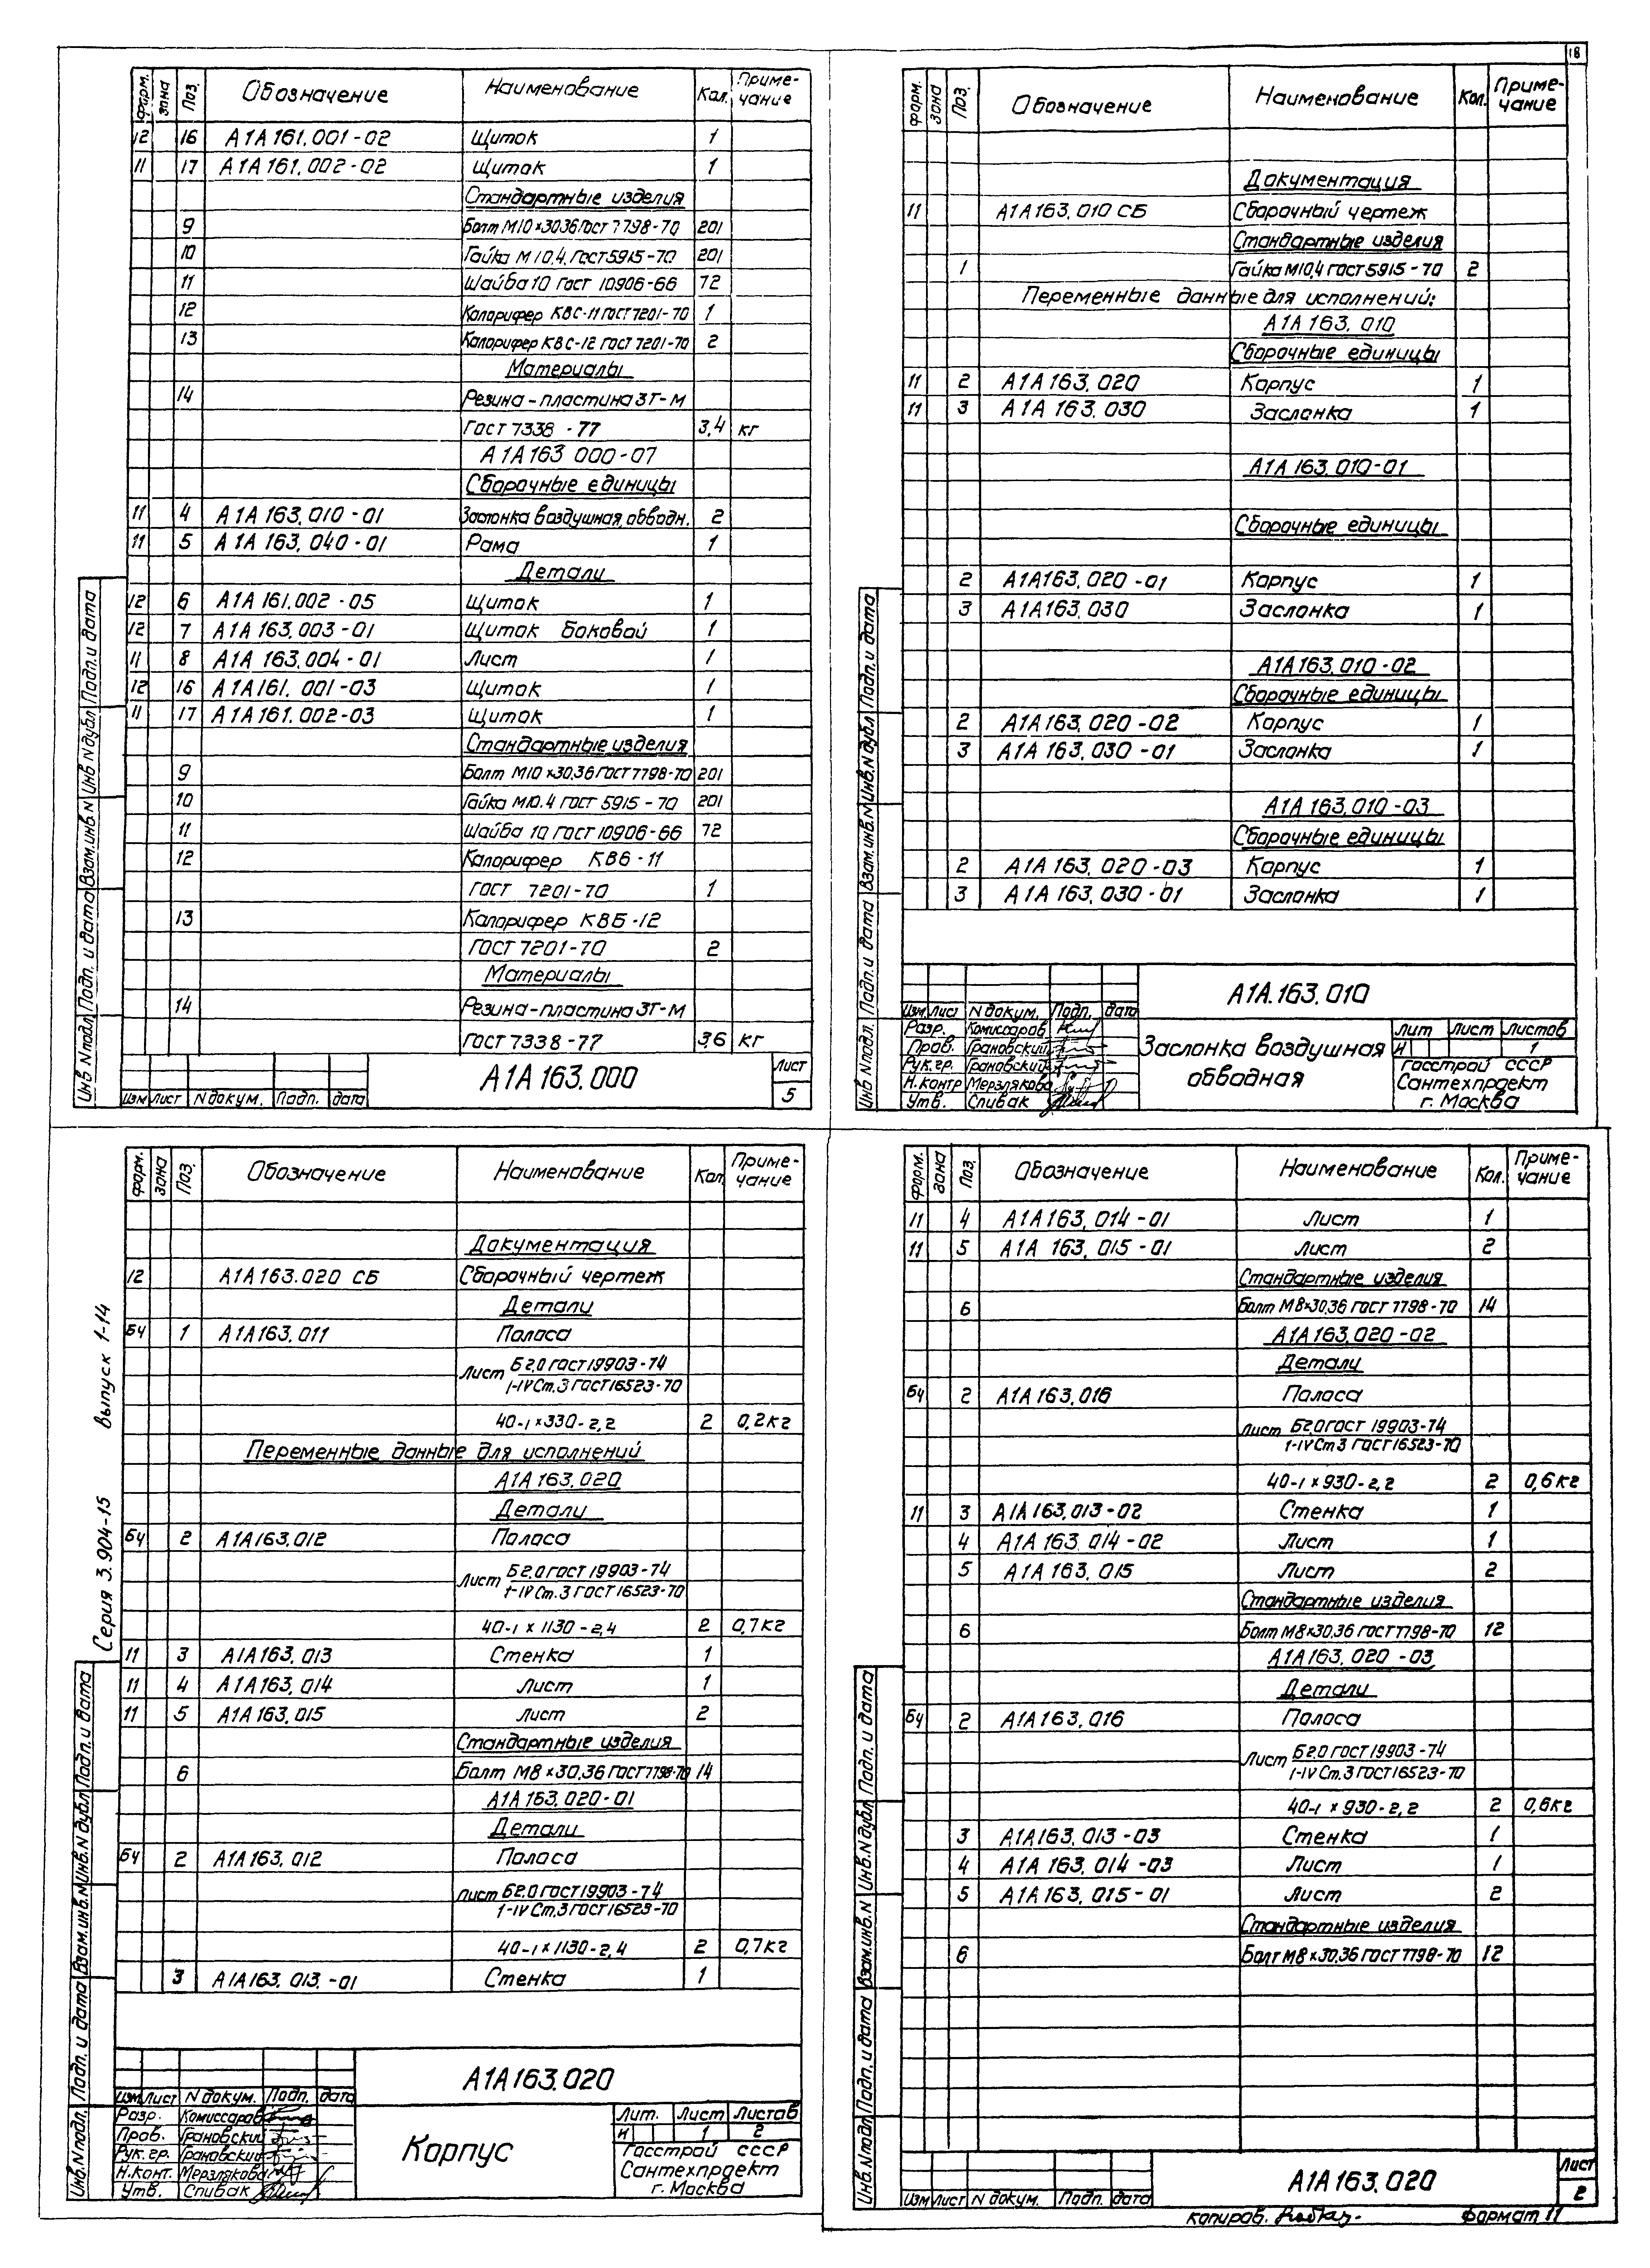 18
Форм. Зона Поз. Обозначение Наименование Кол. Приме-чание
12 16 А1А161.001-02 Щиток 1
11 17 А1А161.002-02 Щиток 1
Стандартные изделия
9 Болт М10×30.36 Гост 7798-70 201
10 Гайка М10.4. Гост 5915-70 201
11 Шайба 10 Гост 10906-66 72
12 Калорифер КВС-11 Гост 7201-70 1
13 Калорифер КВС-12 Гост 7201-70 2
Материалы
14 Резина-пластина 3Т-М
Гост 7338-77 3,4 кг
А1А163 000-07
Сборочные единицы
11 4 А1А 163.010-01 Заслонка воздушная, обводн. 2
11 5 А1А 163.040-01 Рама 1
Детали
12 6 А1А 161.002-05 Щиток 1
12 7 А1А 163.003-01 Щиток боковой 1
11 8 А1А 163.004-01 Лист 1
12 16 А1А161.001-03 Щиток 1
11 17 А1А161.002-03 Щиток 1
Стандартные изделия
9 Болт М10×30.36 ГОСТ 7798-70 201
10 Гайка М10.4 ГОСТ 5915-70 201
11 Шайба 10 ГОСТ 10906-66 72
12 Калорифер КВБ-11
ГОСТ 7201-70 1
13 Калорифер КВБ-12
ГОСТ 7201-70 2
Материалы
14 Резина-пластина 3Т-М
ГОСТ 7338-77 3,6 кг
Инв N подл. Подп. и дата Взам. инв. N Инв N дубл Подп. и дата
Изм Лист N докум. Подп. дата
А1А163.000
Лист
5
Форм. Зона Поз. Обозначение Наименование Кол. Приме-чание
Документация
11 А1А163.010 СБ Сборочный чертеж
Стандартные изделия
1 Гайка М10.4 ГОСТ 5915-70 2
Переменные данные для исполнений:
А1А 163.010
Сборочные единицы
11 2 А1А163.020 Корпус 1
11 3 А1А 163.030 Заслонка 1
А1А 163.010-01
Сборочные единицы
2 А1А163.020-01 Корпус 1
3 А1А163.030 Заслонка 1
А1А163.010-02
Сборочные единицы
2 А1А163.020-02 Корпус 1
3 А1А 163.030-01 Заслонка 1
А1А 163.010-03
Сборочные единицы
2 А1А 163.020-03 Корпус 1
3 А1А 163.030-01 Заслонка 1
Инв N подл. Подп. и дата Взам. инв. N Инв. N дубл Подп. и дата
А1А.163.010
Изм. Лист N докум. Подп. дата
Разр. Комиссаров
Пров. Грановский
Рук. гр. Грановский
Н. контр Мерзлякова
Утв. Спивак
Заслонка воздушная обводная
Лит Лист Листов
И 1
Госстрой СССР
Сантехпроект
г. Москва
Серия 3.904-15 Выпуск 1-14
Форм. Зона Поз. Обозначение Наименование Кол. Приме-чание
Документация
12 А1А163.020 СБ Сборочный чертеж
Детали
БЧ 1 А1А163.011 Полоса
Лист Б2.0 ГОСТ 19903-74
1-IV Ст.3 ГОСТ 16523-70
40-1×330-2,2 2 0,2кг
Переменные данные для исполнений
А1А 163.020
Детали
БЧ 2 А1А163.012 Полоса
Лист Б2.0 ГОСТ 19903-74
1-IV Ст.3 ГОСТ 16523-70
40-1 × 1130-2,4 2 0,7кг
11 3 А1А163.013 Стенка 1
11 4 А1А163.014 Лист 1
11 5 А1А163.015 Лист 2
Стандартные изделия
6 Болт М8×30.36 ГОСТ 7798-70 14
А1А 163.020-01
Детали
БЧ 2 А1А163.012 Полоса
Лист Б2.0 ГОСТ 19903-74
1-IV Ст.3 ГОСТ 16523-70
40-1×1130-2,4 2 0,7кг
3 А1А163.013-01 Стенка 1
Инв. N подл. Подп. и дата Взам. инв. N Инв. N дубл Подп. и дата
А1А163.020
Изм Лист N докум. Подп. дата
Разр. Комиссаров
Пров. Грановский
Рук. гр. Грановский
Н. конт. Мерзлякова
Утв. Спивак
Корпус
Лит. Лист Листов
И 1 2
Госстрой СССР
Сантехпроект
г. Москва
Форм. Зона Поз. Обозначение Наименование Кол. Приме-чание
11 4 А1А163.014-01 Лист 1
11 5 А1А 163.015-01 Лист 2
Стандартные изделия
6 Болт М8×30.36 ГОСТ 7798-70 14
А1А163.020-02
Детали
БЧ 2 А1А163.016 Полоса
Лист Б2.0 ГОСТ 19903-74
1-IV Ст 3 ГОСТ 16523-70
40-1 × 930-2,2 2 0,6кг
11 3 А1А163.013-02 Стенка 1
4 А1А 163.014-02 Лист 1
5 А1А 163.015 Лист 2
Стандартные изделия
6 Болт М8×30.36 ГОСТ 7798-70 12
А1А163.020-03
Детали
БЧ 2 А1А163.016 Полоса
Лист Б2.0 ГОСТ 19903-74
1-IV Ст.3 ГОСТ 16523-70
40-1 × 930-2,2 2 0,6кг
3 А1А163.013-03 Стенка 1
4 А1А 163.014-03 Лист 1
5 А1А163.015-01 Лист 2
Стандартные изделия
6 Болт М8×30.36 ГОСТ 7798-70 12
Инв. N подл. Подп. и дата Взам. инв. N Инв. N дубл Подп. и дата
Изм Лист N докум. Подп. дата
А1А163.020
Лист
2
копиров. формат 11